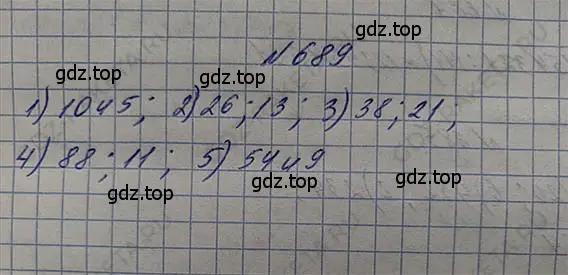 №689
gdz.top gdz.top
1) 10 и 5; 2) 26; 13; 3) 38; 21;
gdz.top
4) 88; 11; 5) 54 и 9
gdz.top gdz.top